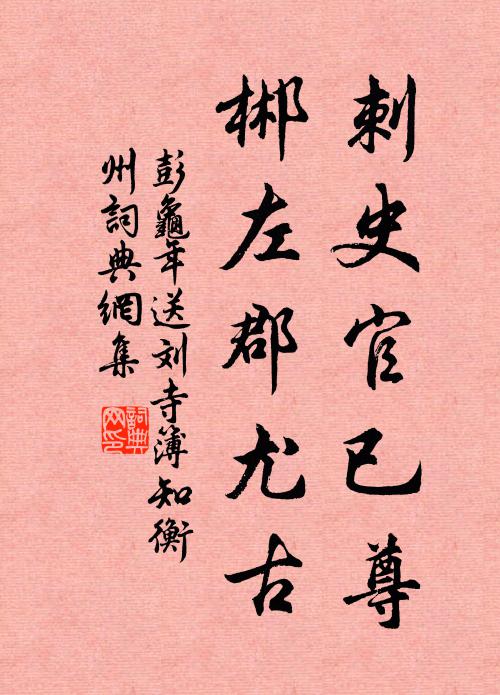 刺史官已尊
郴左郡尤古
彭龜年送刘寺簿知衡
州詞典網集
詞典
网印